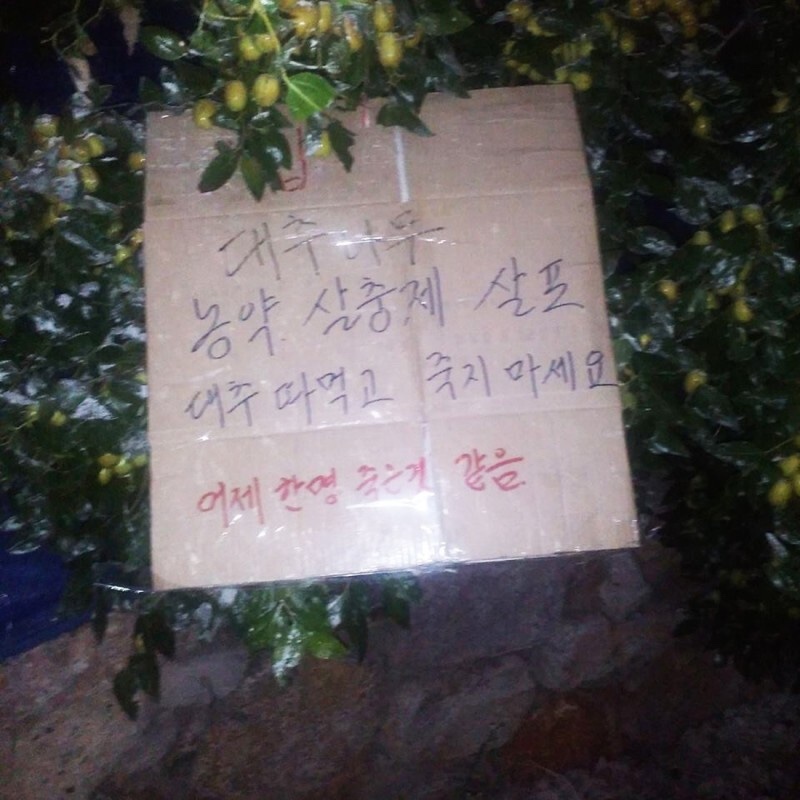 대추나무
농약. 살충제 살포
대추 따먹고 죽지 마세요
어제 한명 죽은거 같음.